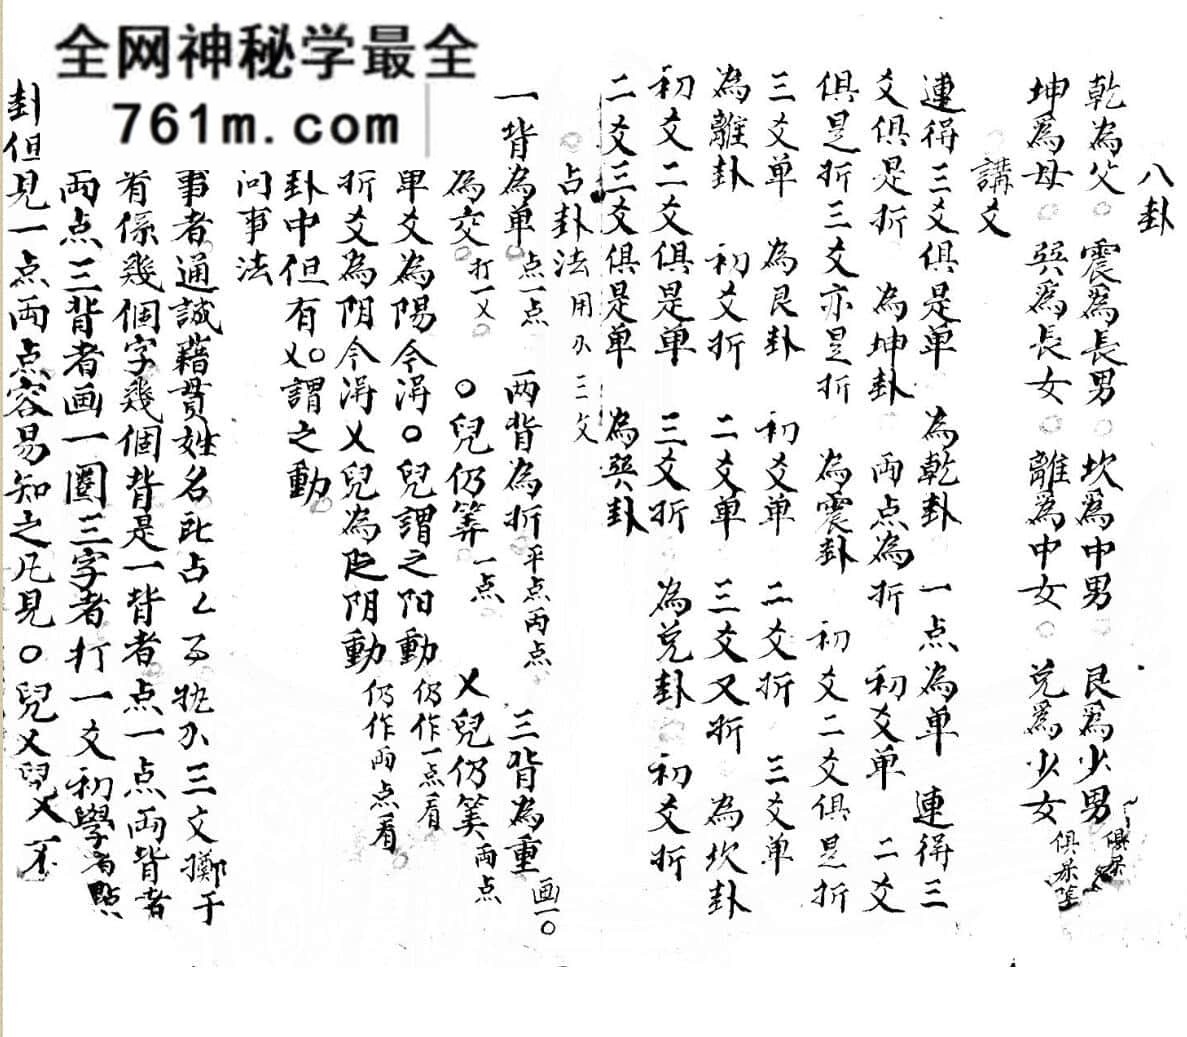 全网神秘学最全
761m.com
八卦
乾為父。震為長男。坎為中男 艮為少男 俱
坤為母。巽為長女。離為中女。兌為少女 俱
講爻
連得三爻俱是单 為乾卦 一点為单 連得三
爻俱是折 為坤卦 両点為折 初爻单 二爻
俱是折三爻亦是折 為震卦 初爻二爻俱是折
三爻单 為艮卦 初爻单 二爻折 三爻单
為離卦 初爻折 二爻单 三爻又折 為坎卦
初爻二爻俱是单 三爻折 為兌卦 初爻折
二爻三爻俱是单 為巽卦
占卦法 用 三文
一背為单。点一点 两背為折。平点両点 三背為重 画一〇
為交。打一乂。 〇兒仍筭一点 乂兒仍筭両点
单爻為陽今得〇兒謂之阳動 仍作一点看
折爻為阴今得乂兒為阴動 仍作両点看
卦中但有〇乂謂之動。
问事法
事者通誠藉貫姓名 占 三文擲于
有係幾個字幾個背是一背者点一点両背者
両点三背者画一圈三字者打一爻初學者點
卦但見一点両点容易知之凡見〇兒乂兒 不